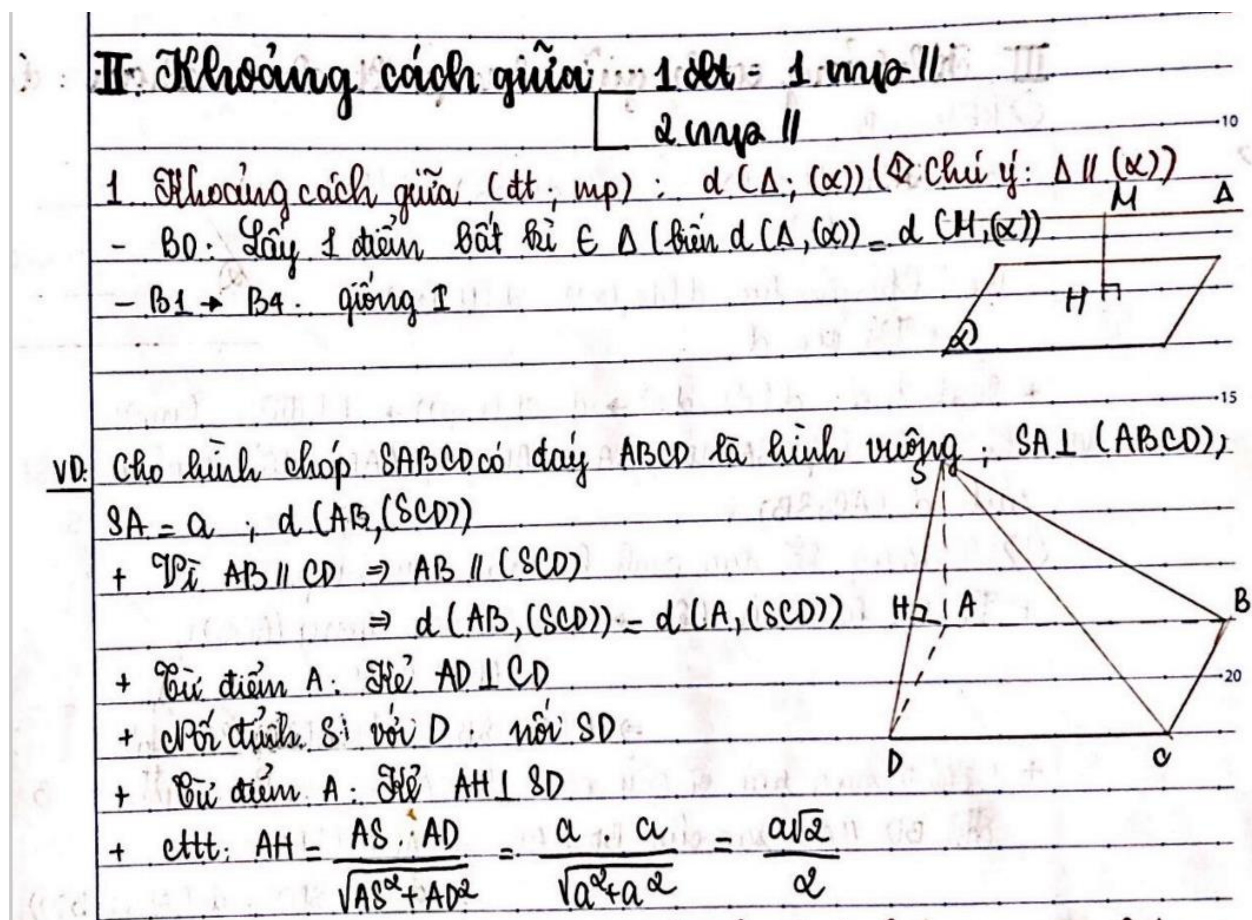 II: Khoảng cách giữa 1 đt - 1 mp //
2 mp //
10
1. Khoảng cách giữa (đt, mp): d(Δ; (α)) (Chú ý: Δ // (α))
M Δ
- B0: Lấy 1 điểm bất kì ∈ Δ (biến d(Δ,(α)) = d(M,(α))
- B1 → B4: giống I
H
α
15
VD: Cho hình chóp SABCD có đáy ABCD là hình vuông, SA ⊥ (ABCD);
S
SA = a ; d(AB,(SCD))
+ Vì AB // CD ⇒ AB // (SCD)
⇒ d(AB,(SCD)) = d(A,(SCD))
H A B
+ Từ điểm A: Kẻ AD ⊥ CD
20
+ Nối đỉnh S với D: nối SD
D C
+ Từ điểm A: Kẻ AH ⊥ SD
+ cttt: AH = AS . AD / √AS²+AD² = a . a / √a²+a² = a√2 / 2